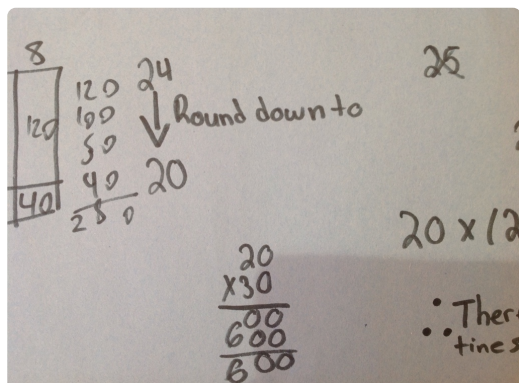 8
120
40
120
100
50
40
280
24
Round down to
20
25
20
x30
600
600
600
20 x 12
∴ Ther
tines